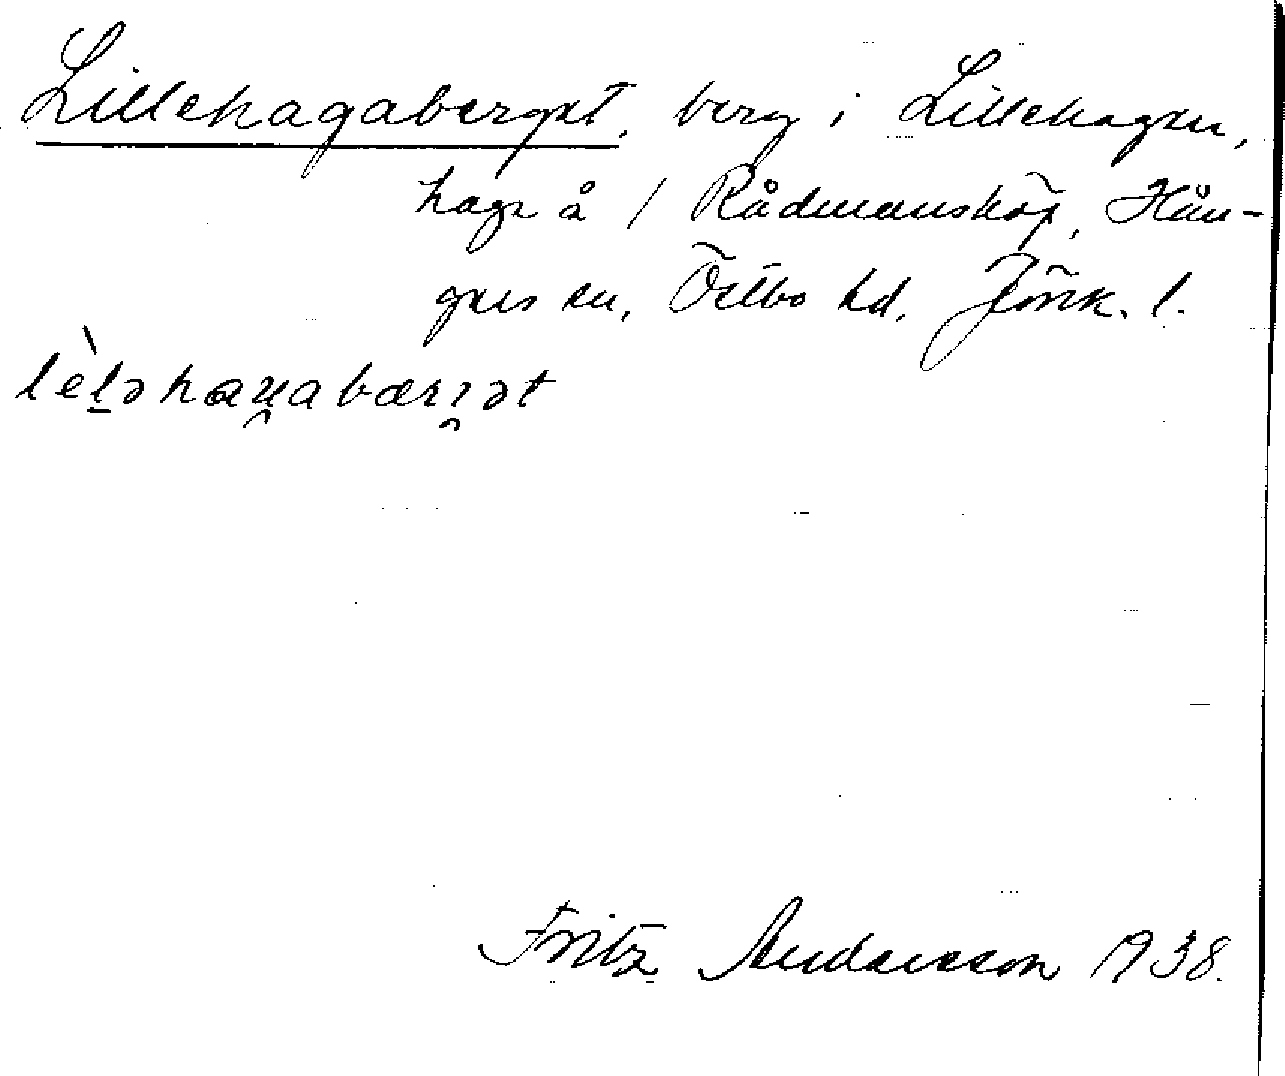 Lillehagaberget, berg i Lillehagen,
hage å / Rådmansköp, Hån-
gers sn, Östbo hd. Jönk. l.
lèlǝhaɥabærɿǝt
Fritz Andersson 1938.